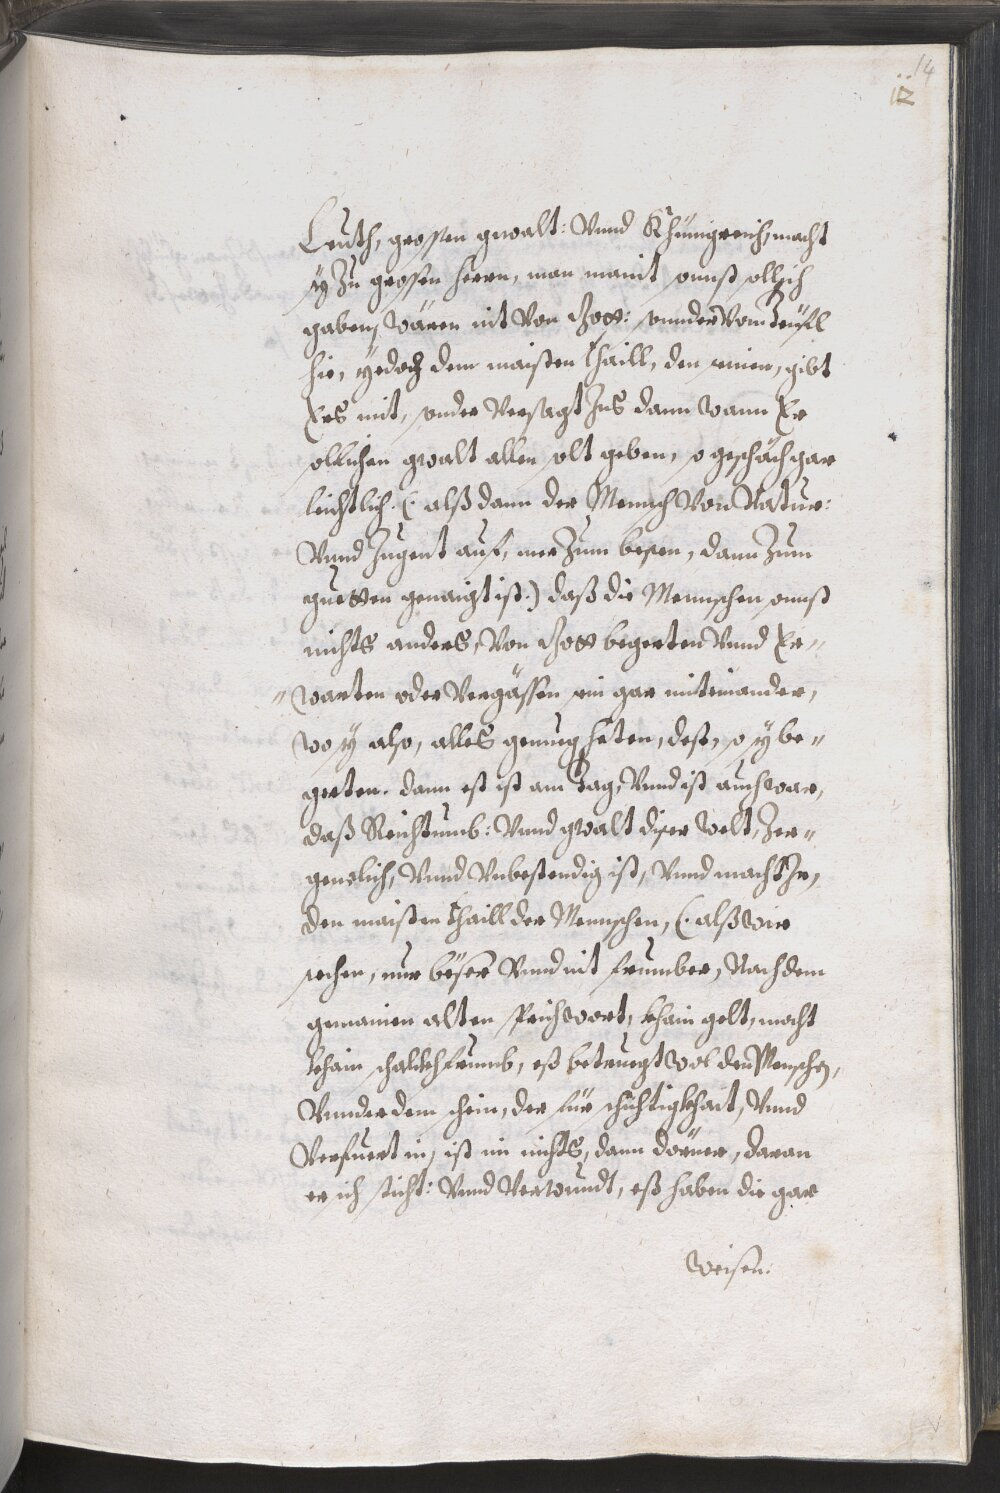 14
12
Leuth, grossen gwalt: Vnnd Khünigreich, macht
sy Zu grossen herrn, man maint sunst sollich
gaben, wären nit Von Gott: sunder Vom Teüfl
hie, yedoch dem maisten thaill, den seinen, gibt
Ers nit, sonder Versagt Ins dann wann Er
sollichen gwalt allen solt geben, so geschäch gar
leichtlich. (: alß dann der Mennsch Von Natur:
Vnnd Jugent auf, mer Zum bösen, dann Zum
guetten genaigt ist:) daß die Mennschen sunst
nichts anders, Von Gott begerten Vnnd Er=
=warten oder Vergässen sein gar miteinander,
wo sy also, alles genueg heten, deß, so sy be=
gerten. dann est ist am Tag, Vnnd ist auch war,
daß Reichtumb: Vnnd gwalt diser welt, Zer=
genclich, Vnnd Vnbestendig ist, Vnnd macht Ir,
den maisten thaill der Mennschen, (: alß wir
sechen, nur böser Vnnd nit frumber, Nach dem
gemainen alten sprichwort, khain gelt, macht
khain schalckh frumb, eß betruegt wol den Menschen,
Vnnder dem schein, der für sichtigkhait, Vnnd
Verfuert in, ist im nichts, dann dörner, daran
er sich sticht: Vnnd Verwundt, eß haben die gar
weisen: